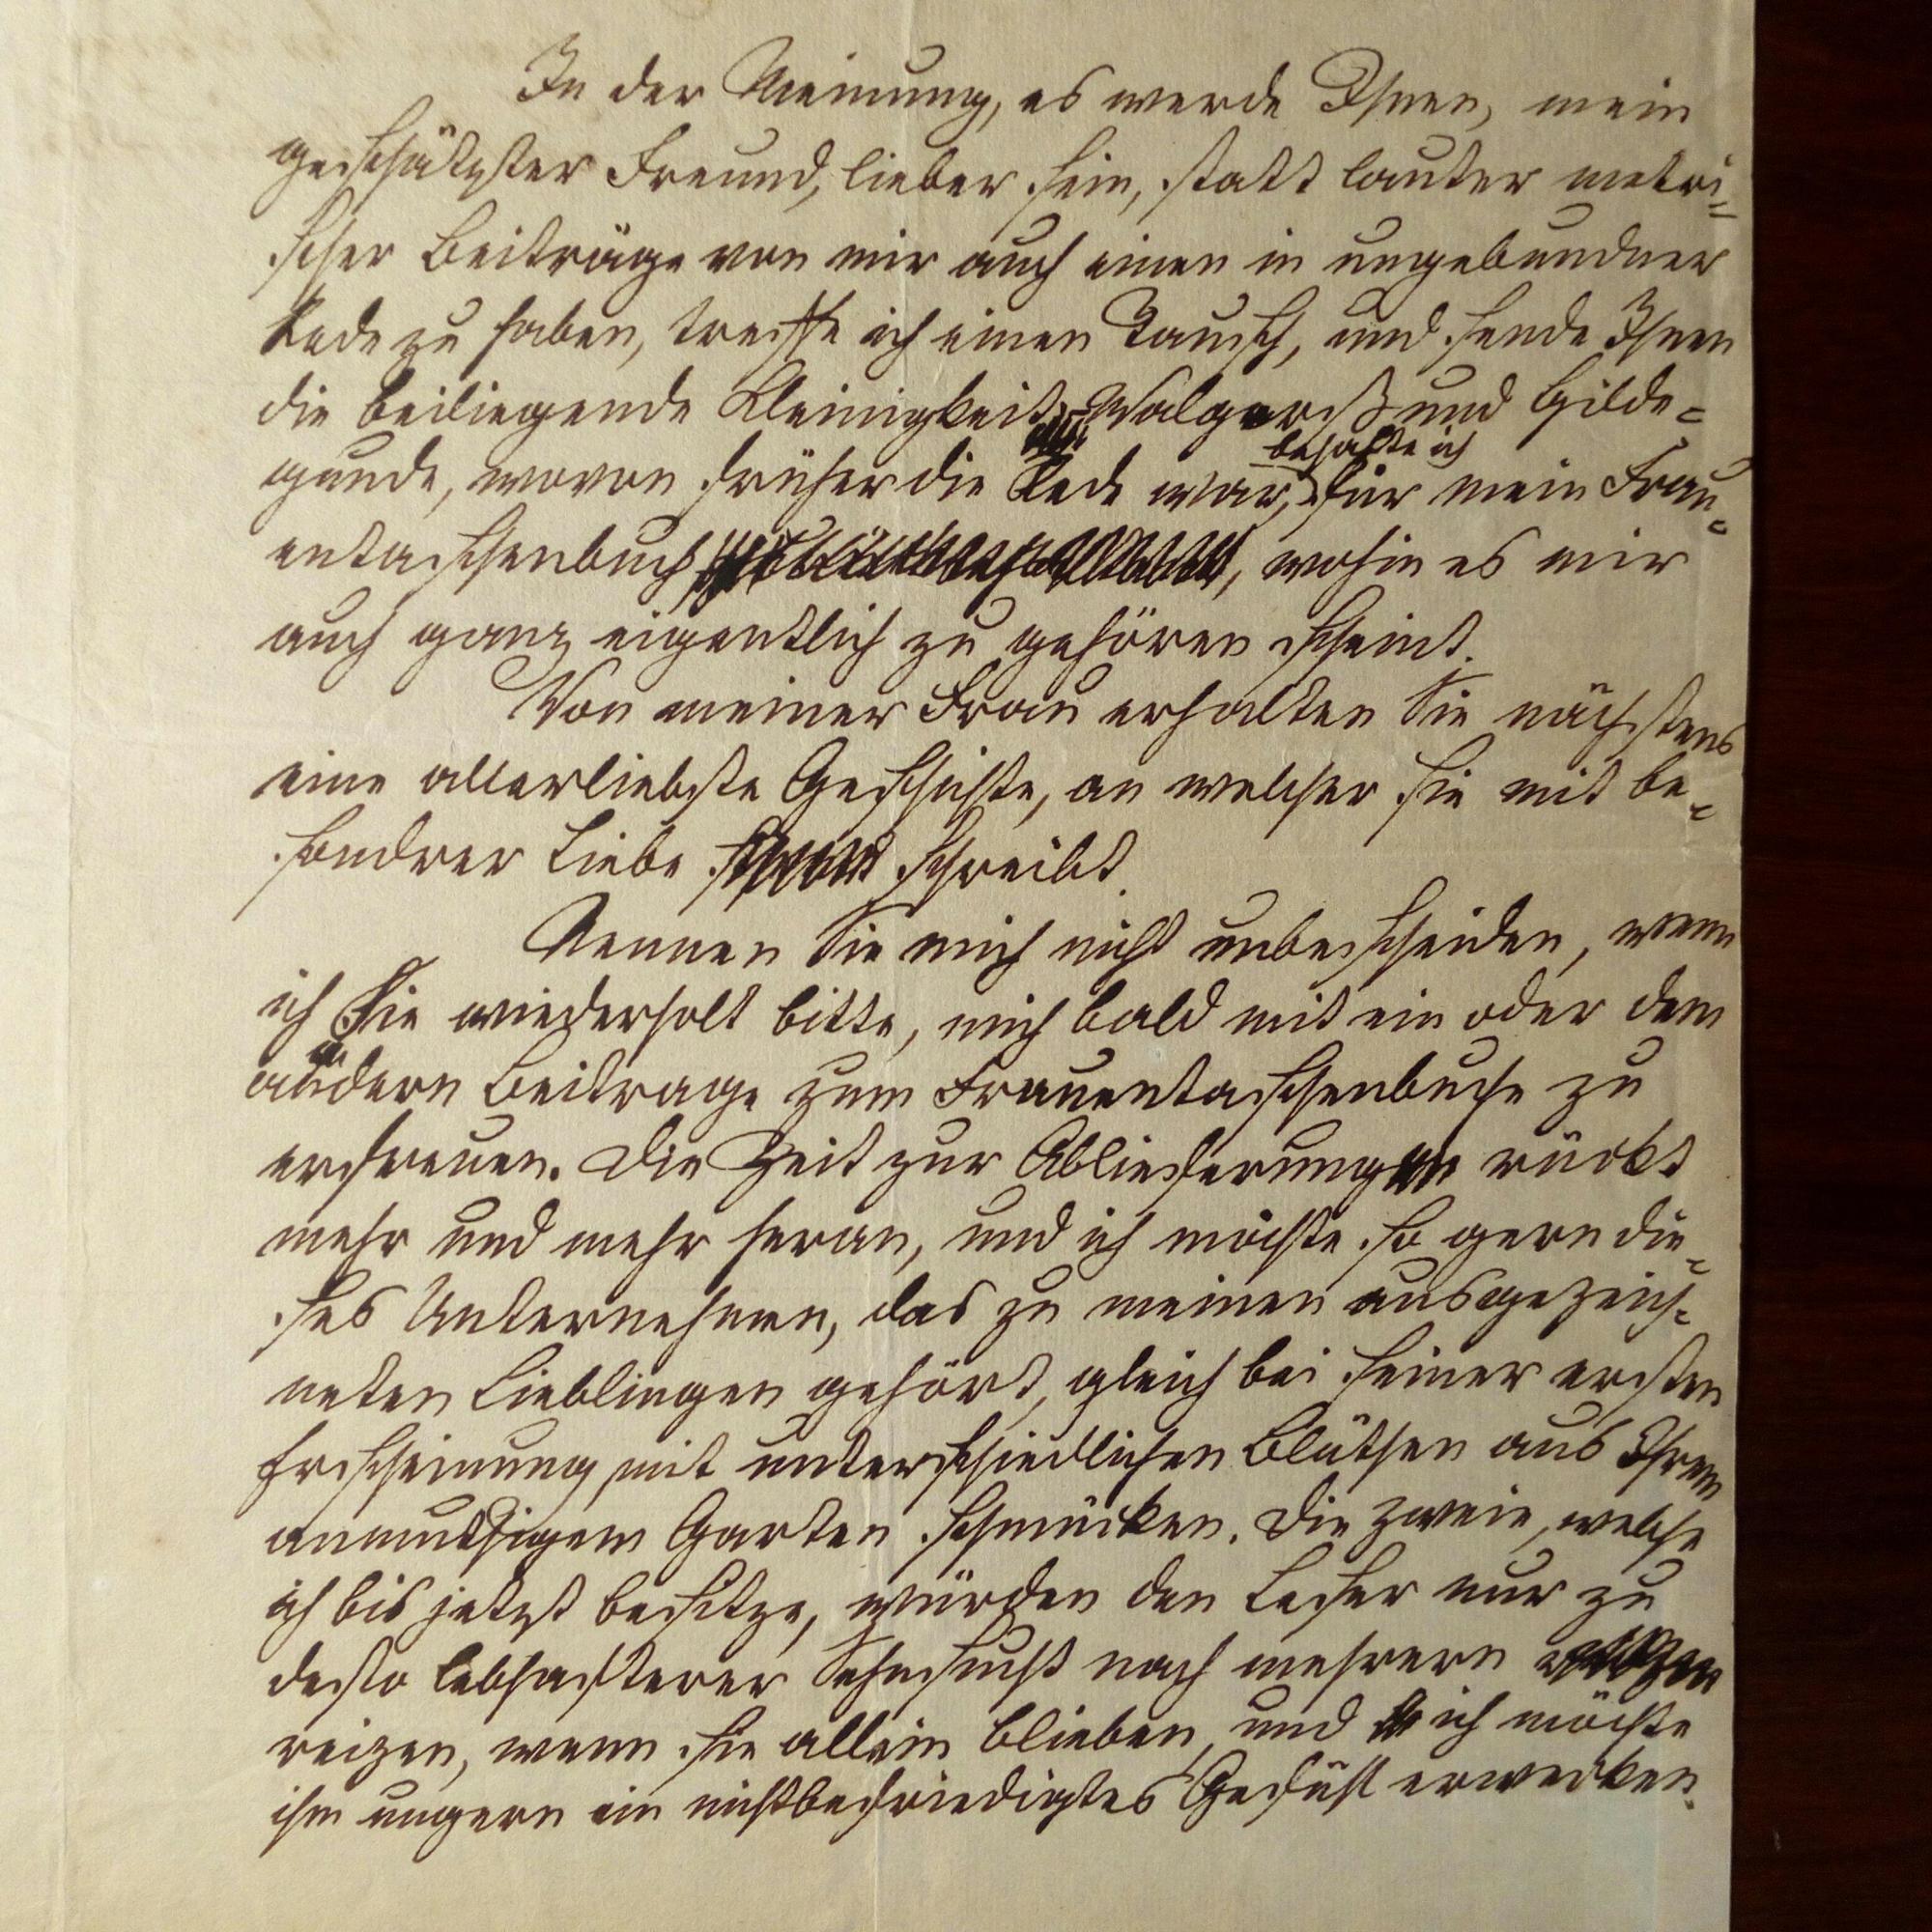 In der Meinung, es werde Ihnen, mein
geschätzter Freund, lieber sein, statt lauter metri=
scher Beiträge von mir auch einen in ungebundner
Rede zu haben, treffe ich einen Tausch, und sende Ihnen
die beiliegende Kleinigkeit. und Hilde=
gunde, wovon früher die Rede war, behalte ich für mein Frau=
entaschenbuch, wohin es mir
auch ganz eigentlich zu gehören scheint.
Von meiner Frau erhalten Sie nächstens
eine allerliebste Geschichte, an welcher sie mit be=
sondrer Liebe schreibt.
Nennen Sie mich nicht unbescheiden, wenn
ich Sie wiederholt bitte, mich bald mit ein oder dem
andern Beitrage zum Frauentaschenbuche zu
erfreuen. Die Zeit zur Ablieferung rückt
mehr und mehr heran, und ich möchte so gern die=
ses Unternehmen, das zu meinen ausgezeich=
neten Lieblingen gehört, gleich bei seiner ersten
Erscheinung mit unterschiedlichen Blüthen aus Ihrem
anmuthigem Garten schmücken. Die zweie, welche
ich bis jetzt besitze, würden den Leser nur zu
desto lebhafterer Sehnsucht nach mehrern
reizen, wenn sie allein blieben, und ich möchte
ihm ungern ein nichtbefriedigtes Gefühl erwecken.